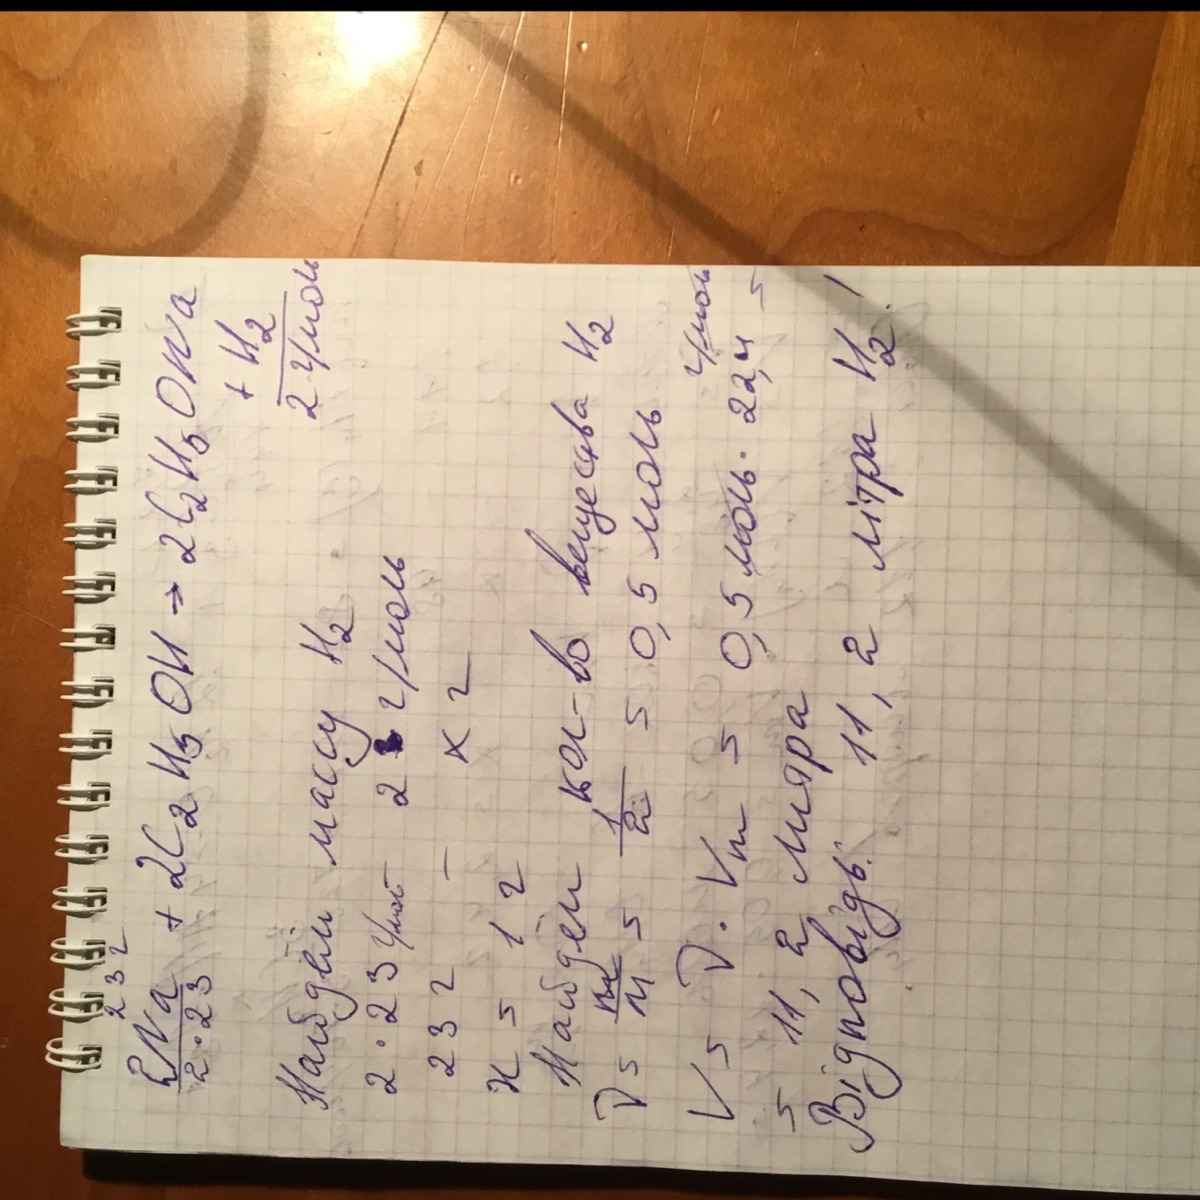 23 г
2Na + 2C2H5OH → 2C2H5ONa
2·23
+ H2
2 г/моль
Найдем массу H2
2·23 г/моль 2 г/моль
23 г – x г
x = 1 г
Найдем кол-во вещества H2
ν = m/M = 1/2 = 0,5 моль
V = ν · Vm = 0,5 моль · 22,4 л/моль =
= 11,2 литра
Відповідь: 11,2 літра H2!